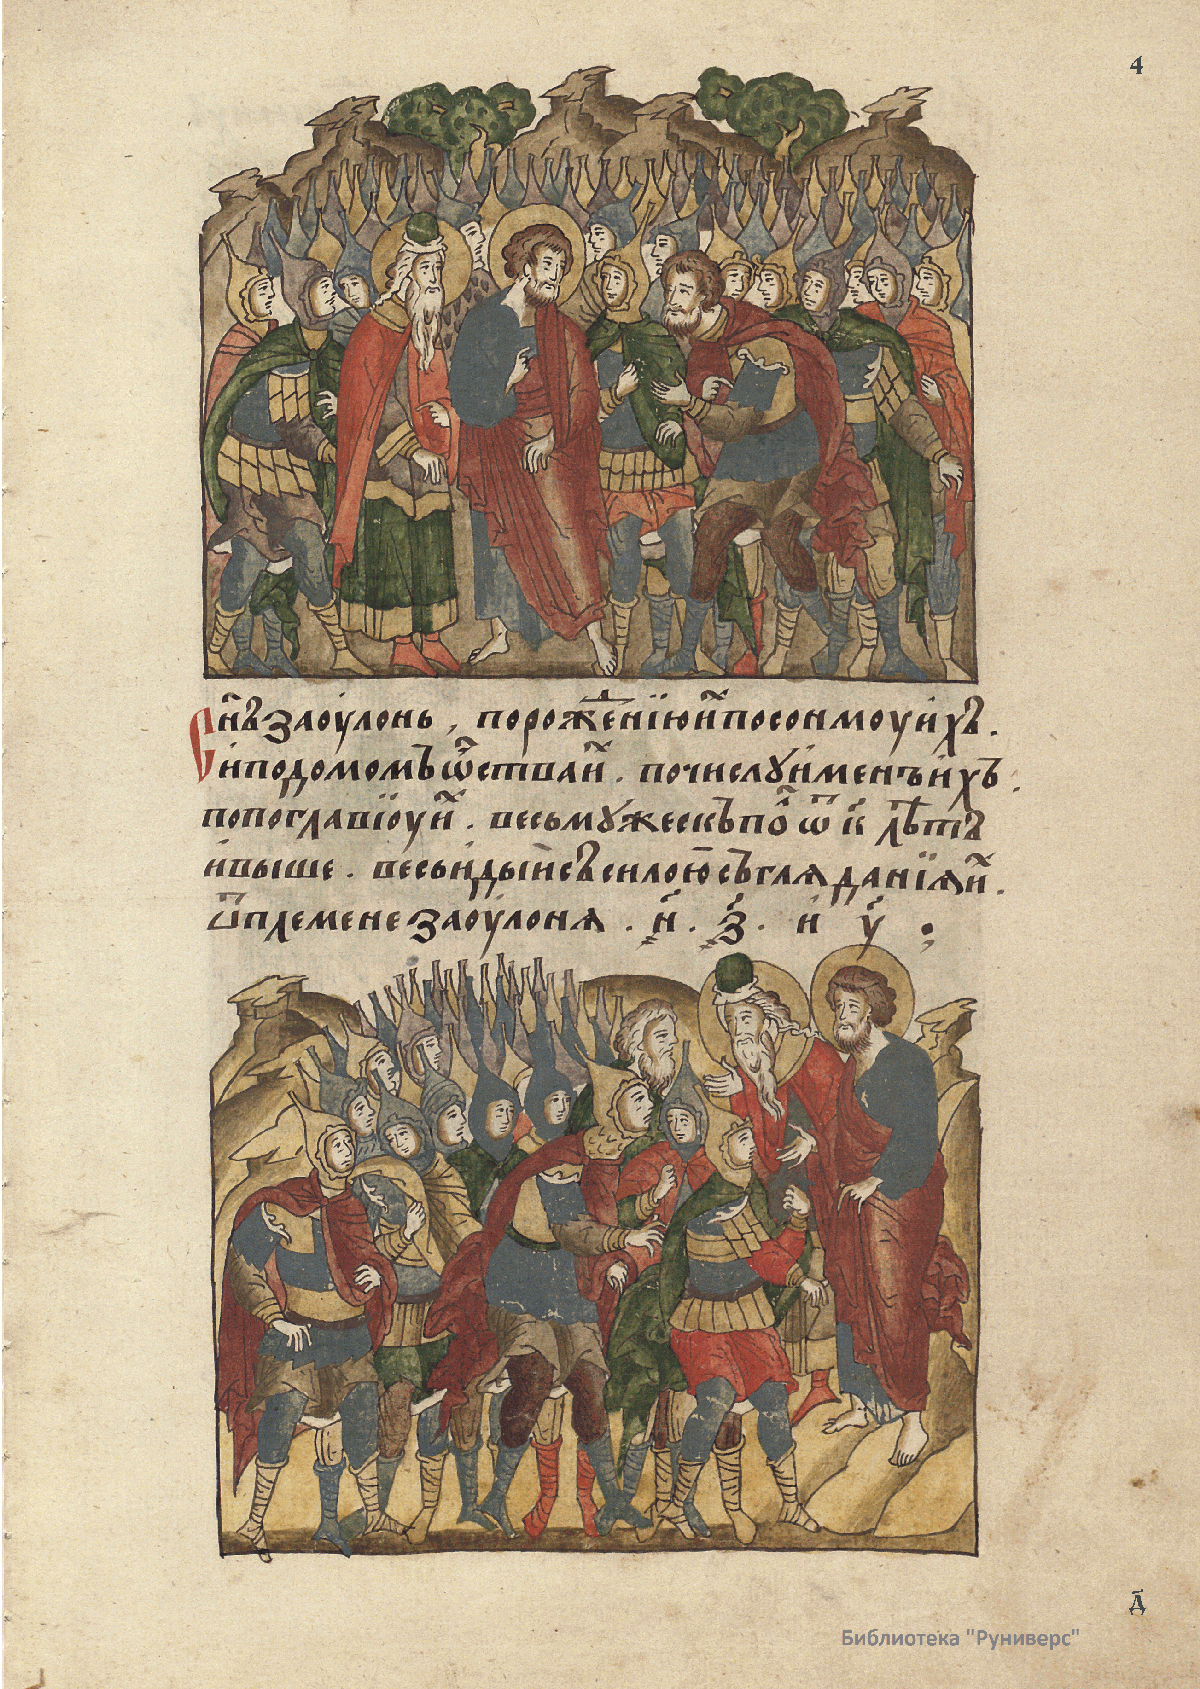 4
Сн҃въ заоулонь , порожⷣенїюи҆хпосонмоуихъ .
иподомомъѿестваи҆х . почислꙋименъихъ .
попоглавїоуи҆х . весьмꙋжескъпоⷧ ѿ к҃ лѣⷮтъ
ивыше . весьидыисъсилоюсъглѧданїѧи҆х .
ѿплеменезаоулонѧ . н҃ . з҃ . и у҃ .
д҃
Библиотека "Руниверс"